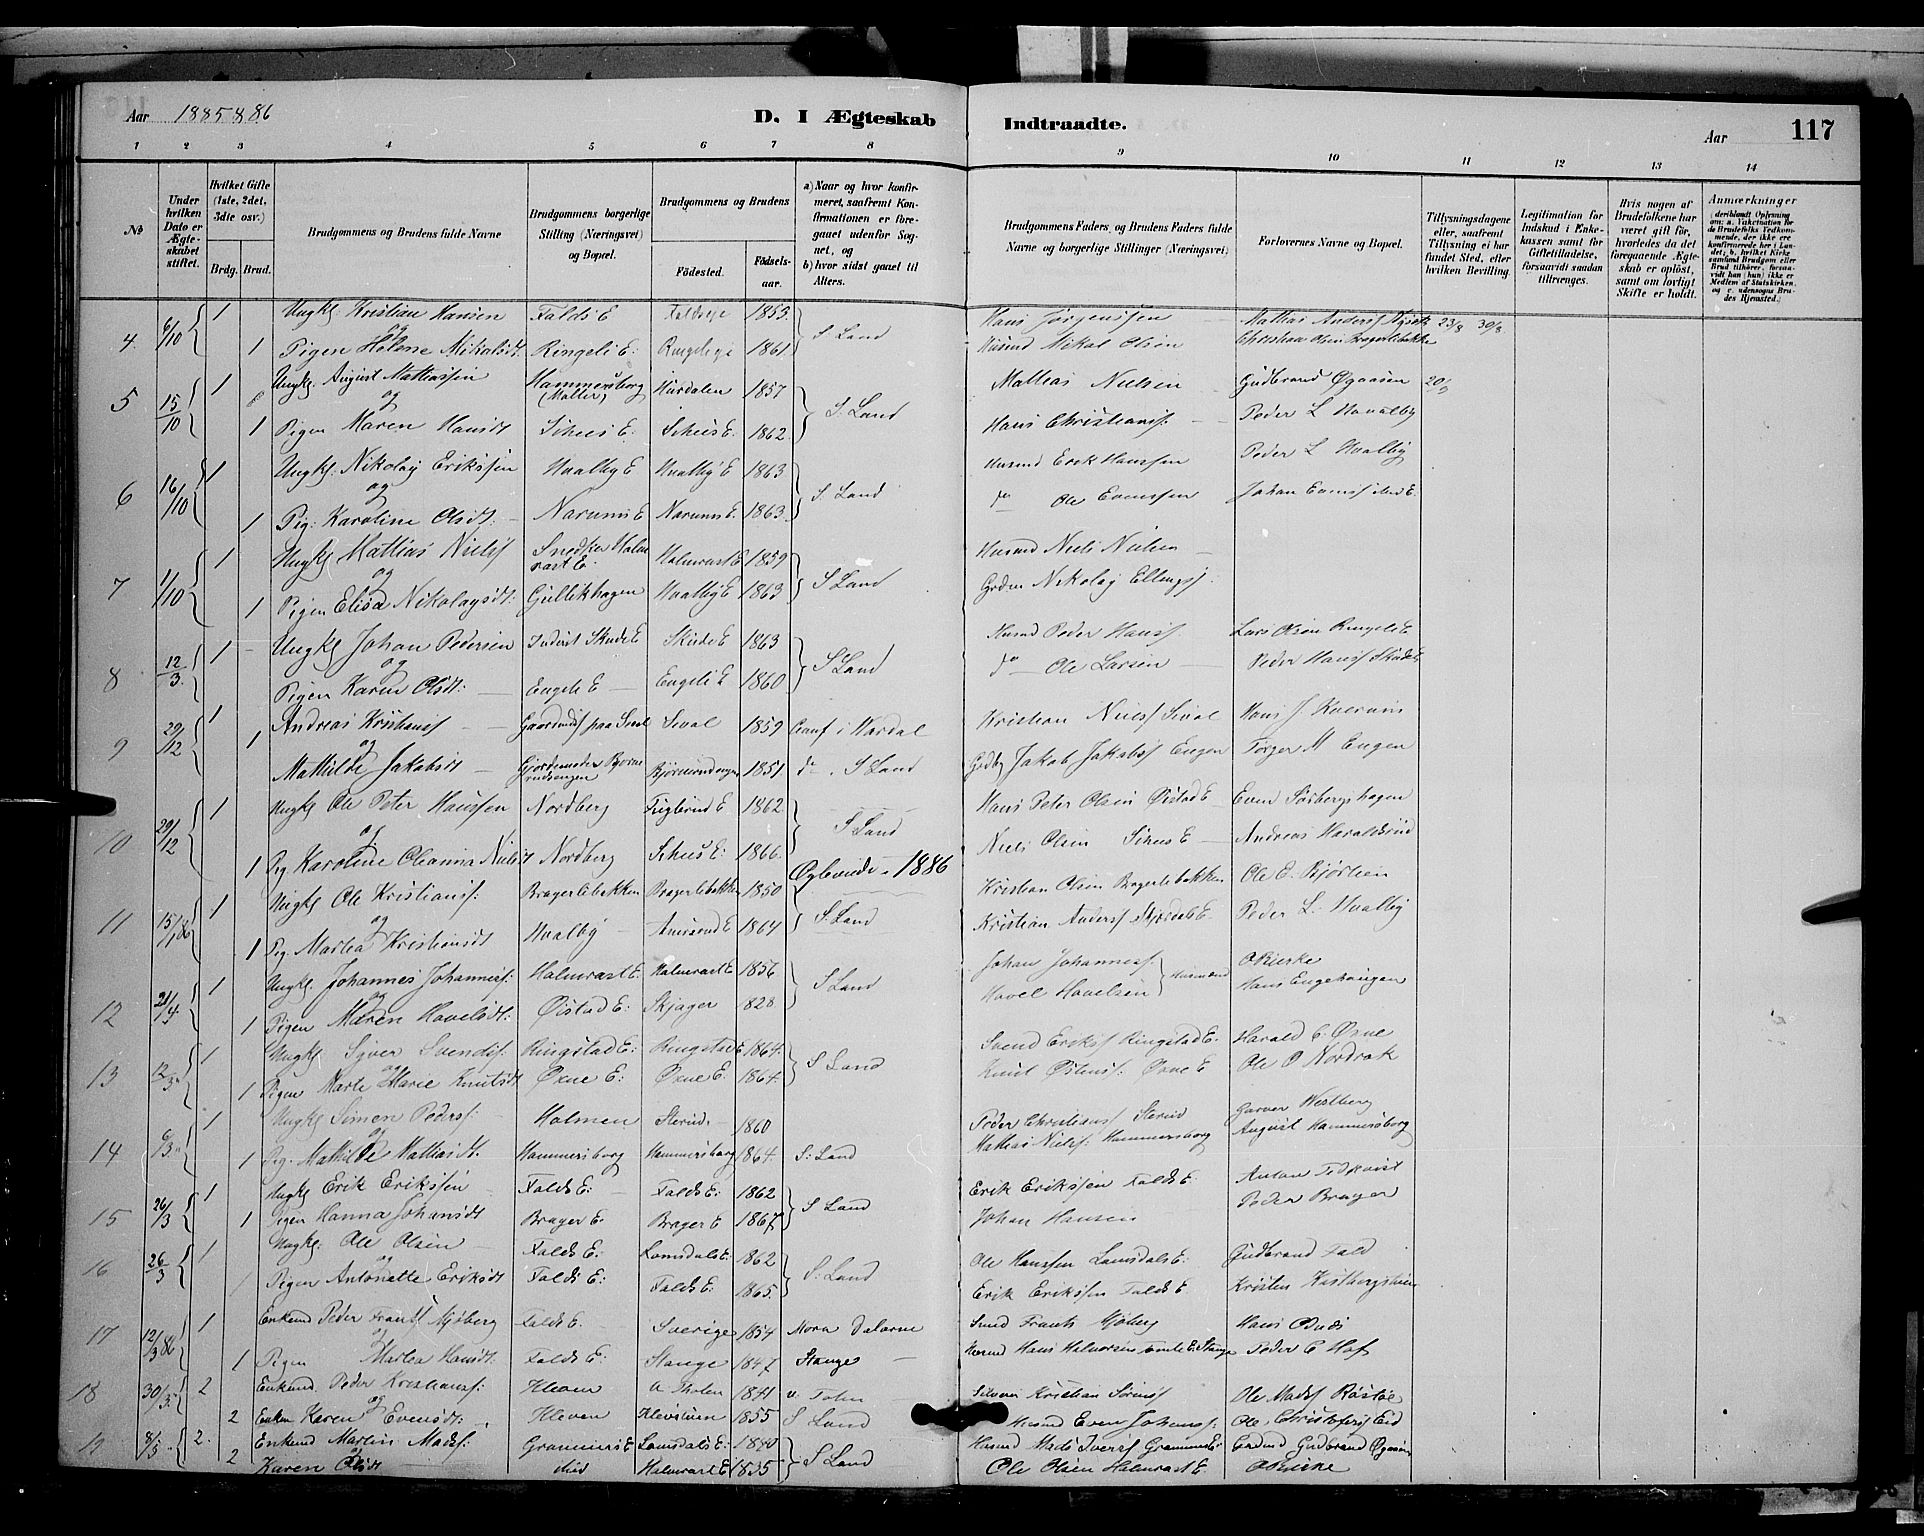 Aar 1885 & 86
D. I Ægteskab Indtraadte.
Aar 117
1 2 3 4 5 6 7 8 9 10 11 12 13 14
№
Under hvilken Dato er Ægteskabet stiftet.
Hvilket Gifte (1ste, 2det, 3die osv.)
Brdg. Brud.
Brudgommens og Brudens fulde Navne
Brudgommens borgerlige Stilling (Næringsvei) og Bopæl.
Brudgommens og Brudens
Födested. Födsels-aar.
a) Naar og hvor konfirmeret, saafremt Konfirmationen er foregaaet udenfor Sognet, og
b) hvor sidst gaaet til Alters.
Brudgommens Faders og Brudens Faders fulde Navne og borgerlige Stillinger (Næringsvei)
Forlovernes Navne og Bopæl.
Tillysningsdagene eller, saafremt Tillysning ei har fundet Sted, efter hvilken Bevilling.
Legitimation for Indskud i Enkekassen samt for Giftetilladelse, forsaavidt saadan tiltrænges.
Hvis nogen af Brudefolkene har været gift för, hvorledes da det foregaaende Ægteskab er oplöst, samt om lovligt Skifte er holdt.
Anmærkninger (deriblandt Oplysning om: a. Vakcination for de Brudefolks Vedkommende, der ikke ere konfirmerede her i Landet; b. hvilket Kirkesamfund Brudgom eller Brud tilhörer, forsaavidt han (hun) ikke er Medlem af Statskirken, og c. udensogns Brudes Hjemsted.)
4 6/10 1 Ungk. Kristian Hansen Falds E 1853 S. Land Hans Jørgenssen 23/8 30/8
og
1 Pigen Helene Mikalsdt. Ringeli E. 1861 Husmd Mikal Olsen Christian Olsen Bragerlibakke
5 15/10 1 Ungk. August Mathiassen Hammersborg (Maller) Hurdalen 1857 S. Land Mathias Nielsen Gudbrand Øgaasen 20/9
og
1 Pigen Maren Hansdt Sehus E. Sehus E. 1862 Hans Christians. Peder L Hvalby
6 16/10 1 Ungk. Nikolay Erikssen Hvalby E Hvalby E 1863 S. Land Husmd Erik Hanssen Peder L Hvalby
og
1 Pig. Karoline Olsdt. Narums E Narums E. 1863 do Ole Evenssen
7 1/10 1 Ungk Mathias Niels Snedker Halmrast E. Halmrast E 1859 S Land Husmd Niels Nielsen
og
1 Pigen Elise Nikolaysdt. Gullikhagen Hvalby E 1863 Nikolay Ellings.
8 12/3 1 Ungk Johan Pedersen Inderst Skude E Skude E 1863 S Land Husmd Peder Hans. Lars Olsen Ringeli E
og
Pigen Karen Olsdt. Engeli E Engeli E 1860 do Ole Larsen Peder Hans Skude
9 29/12 1 Andreas Kristians Gaardmd paa Sival Sival 1859 Conf i Vardal Kristian Niels Sival
og
1 Mathilde Jakobsdt Gjordemoder Bjørnerudengen Bjørnerudengen 1851 do S Land Jakob Jakobs Engen Torger M Engen
10 29/12 1 Ungk Ole Peter Hanssen Nordberg Fuglerud E 1862 S Land Hans Peter Olsen Øistad E Even Sørbergshagen
og
1 Pig Karoline Oleanna Nielsdt Nordberg Sehus E. 1866 Niels Olsen Sehus E Andreas Haraldsrud
1886
11 15/1 86 1 Ungk Ole Kristians. Bragerlibakken Bragerlibakken 1850 S. Land Kristian Olsen Bragerlibakken Ole E. Bjørlien
og
1 Pig. Marthea Kristiansdt Hvalby 1864 Kristian Anders Peder L. Hvalby
12 21/4 1 Ungk. Johannes Johannes. Halmrast E. Halmrast E 1856 S Land Johan Johannes. Husmænd O Kierke
og
1 Pigen Maren Hovelsdt. Øistad E. Skjager 1828 Hovel Hovelsen Hans Engehaugen
13 12/3 1 Ungk Syver Svends. Ringstad E. Ringstad E 1864 S Land Svend Eriks Ringstad E. Harald C. Øxne
og
1 Pigen Marte Marie Knutsdt Øxne E. Øxne E. 1864 Knut Østens. Øxne E Ole O Nordrak
14 6/3 1 Ungk Simen Peders. Holmen Sterud 1860 Peder Christians Sterud Garver Westberg
og
1 Pig. Mathilde Mathiasdt. Hammersborg Hammersborg 1864 S. Land Mathias Niels. Hammersborg August Hammersborg
15 26/3 1 Ungk Erik Erikssen Falds E. Falds E. 1862 S Land Erik Erikssen Falds E. Anton Tidkvist
1 Pigen Hanna Johansdt Brager E. Brager E 1867 Johan Hansen Peder Brager
16 26/3 1 Ungk. Ole Olsen Falds E. Lomsdals E. 1862 S. Land Ole Hanssen Lomsdals E. Gudbrand Fald
og
1 Pigen Antonette Eriksdt Falds E. Falds E. 1865 Erik Erikssen Falds E.
17 12/3 86 1 Enkemd Peder Frants Mjøberg Falds E. Sverige 1854 Mora Dalarne Smed Frants Mjøberg
og
1 Pigen Marthea Hansdt. Falds E. Stange 1847 Stange Husmd Hans Halvorsen Peder E Hof
18 30/3 2 Enkemd. Peder Kristians. Kleven 1841 Kristian Sørens Ole Mads Røstøe
og
2 Enken Karen Evensdt. Kleven Klevstuen 1855 S Land Husmd Even Johans. Ole Christofers Eid
19 8/5 2 Enkemd Martin Mads. Grammes E Lomsdals E. 1840 S Land Husmd Mads Ivers Grammes E. Gudbrand Øgaasen
2 Karen Olsdt Halmrast E 1835 Ole Olsen Halmrast E. O Kierke